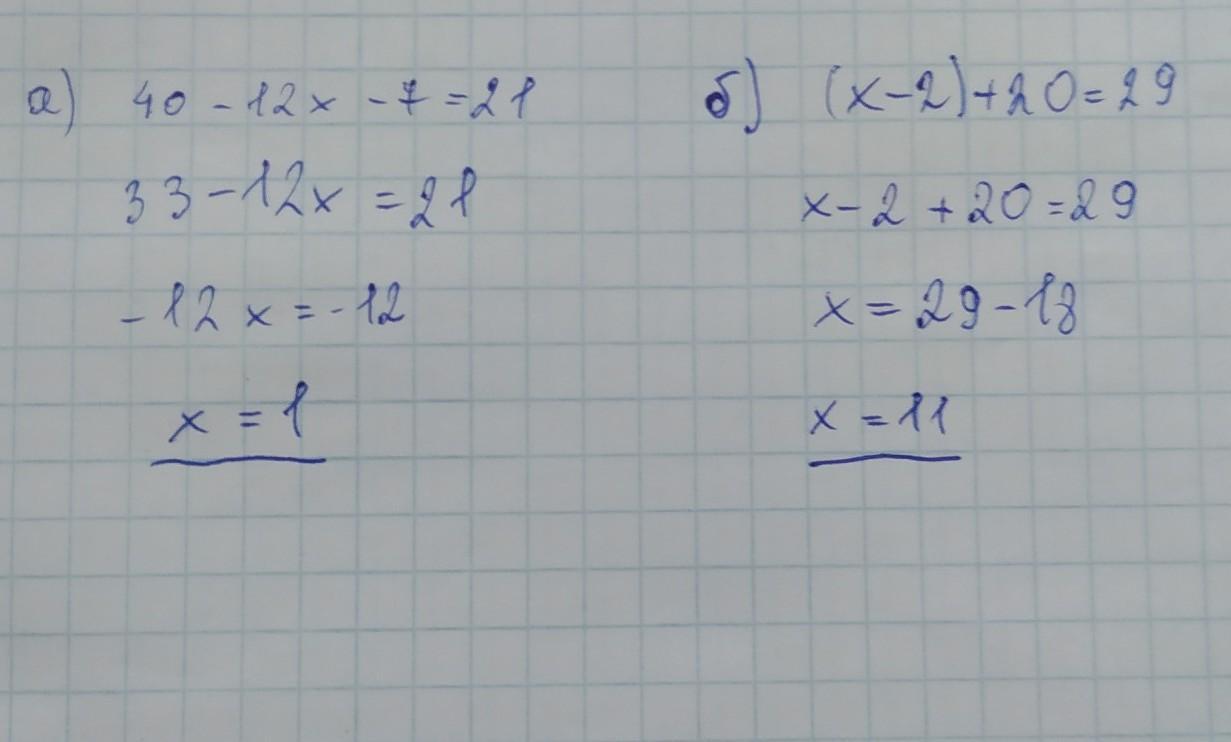 а) 40 - 12x - 7 = 21
33 - 12x = 21
- 12x = - 12
x = 1
б) (x - 2) + 20 = 29
x - 2 + 20 = 29
x = 29 - 18
x = 11